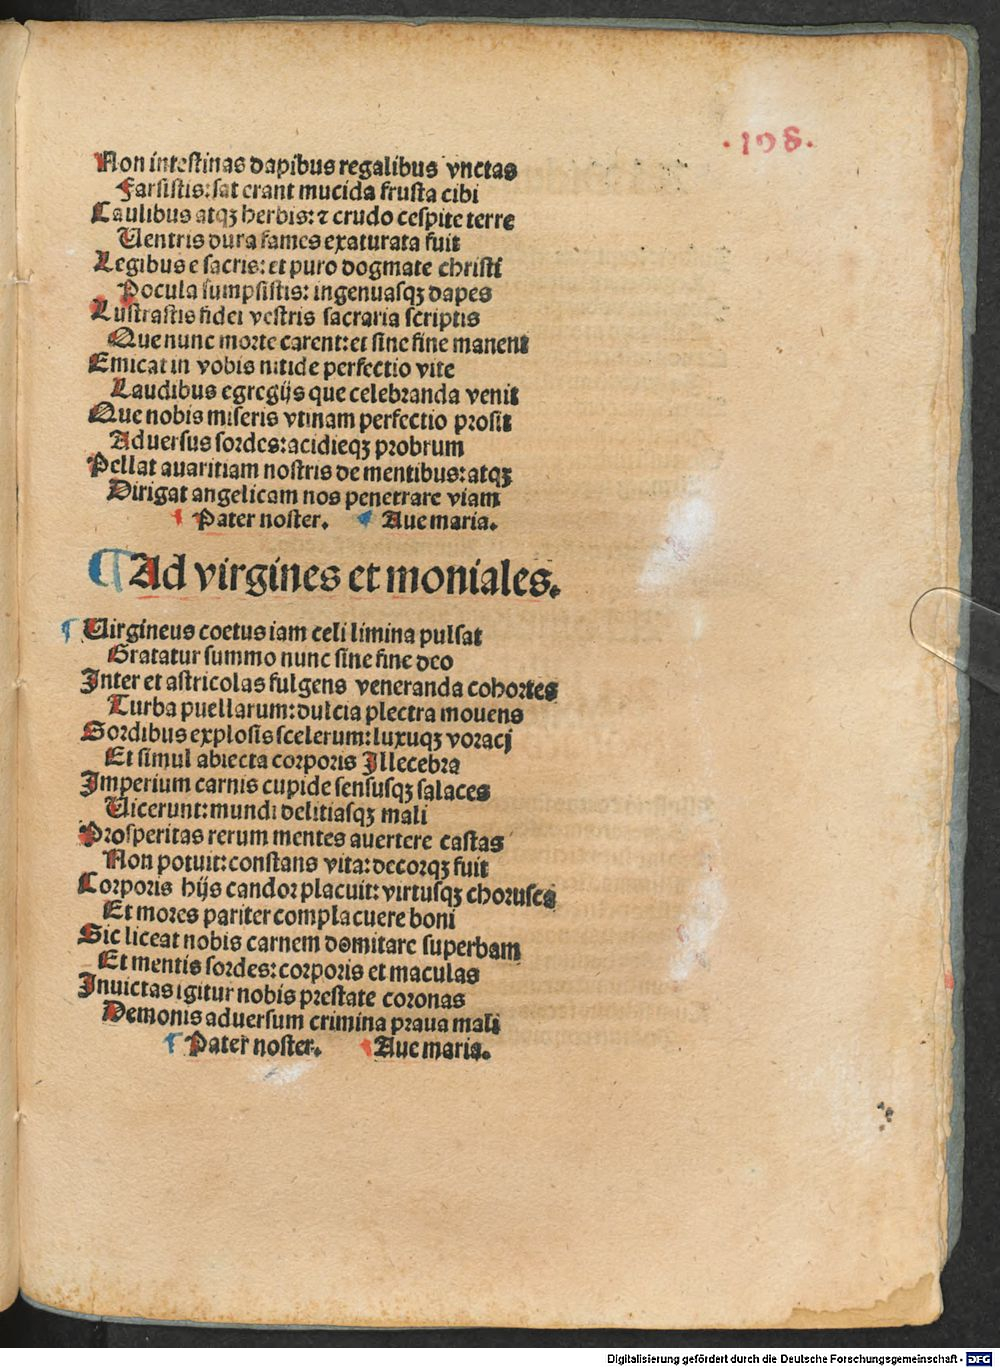 ·198·
Non intestinas dapibus regalibus vnctas
Farsistis: sat erant mucida frusta cibi
Caulibus atqꝫ herbis: ⁊ crudo cespite terre
Uentris dura fames exaturata fuit
Legibus e sacris: et puro dogmate christi
Pocula sumpsistis: ingenuasqꝫ dapes
Lustrastis fidei vestris sacraria scriptis
Que nunc morte carent: et sine fine manent
Emicat in vobis nitide perfectio vite
Laudibus egregijs que celebranda venit
Que nobis miseris vtinam perfectio prosit
Aduersus sordes: acidieqꝫ probrum
Pellat auaritiam nostris de mentibus: atqꝫ
Dirigat angelicam nos penetrare viam
Pater noster. Aue maria.
¶ Ad virgines et moniales.
¶ Uirgineus coetus iam celi limina pulsat
Gratatur summo nunc sine fine deo
Inter et astricolas fulgens veneranda cohortes
Turba puellarum: dulcia plectra mouens
Sordibus explosis scelerum: luxuqꝫ voracj
Et simul abiecta corporis Illecebra
Imperium carnis cupide sensusqꝫ salaces
Uicerunt: mundi delitiasqꝫ mali
Prosperitas rerum mentes auertere castas
Non potuit: constans vita: decorqꝫ fuit
Corporis hijs candor placuit: virtusqꝫ chorusca
Et mores pariter complacuere boni
Sic liceat nobis carnem domitare superbam
Et mentis sordes: corporis et maculas
Inuictas igitur nobis prestate coronas
Demonis aduersum crimina praua mali
Pater noster. Aue maria.
Digitalisierung gefördert durch die Deutsche Forschungsgemeinschaft - DFG